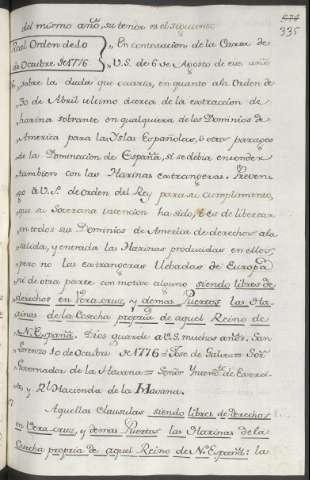 del mismo año, su tenor es el siguiente
335
Real Orden de 10
de Octubre de 1776
"En contextacion de la Carta de
V.S. de 6 de Agosto de este año
sobre la duda que ocurria, en quanto a la Orden de
30 de Abril ultimo acerca de la extraccion de
harina sobrante en qualquiera de los Dominios de
America para las Islas Españolas, ù otros parages
de la Dominacion de España, si se debia entender
tambien con las Harinas extrangeras: Preven-
go à V.S. de orden del Rey para su cumplimiento,
que su Soverana intencion ha sido, es de libertar
en todos sus Dominios de America de derechos a la
salida, y entrada las Harinas producidas en ellos,
pero no las extrangeras llebadas de Europa
ni de otra parte con motivo alguno siendo libres de
derechos en Vera cruz, y demas Puertos las Ha-
rinas de la Cosecha propia de aquel Reino de
N.E. España. Dios guarde a V.S. muchos años. San
Lorenzo 10 de Octubre de 1776 = Josè de Galvez = Sor.
Governador de la Havana = Señor Yntend.te de Exerci-
to, y Rl. Hacienda de la Havana.
Aquellas Clausulas siendo libres de derechos
en Vera cruz, y demas Puertos las Harinas de la
Cosecha propia de aquel Reino de N.E. España: la